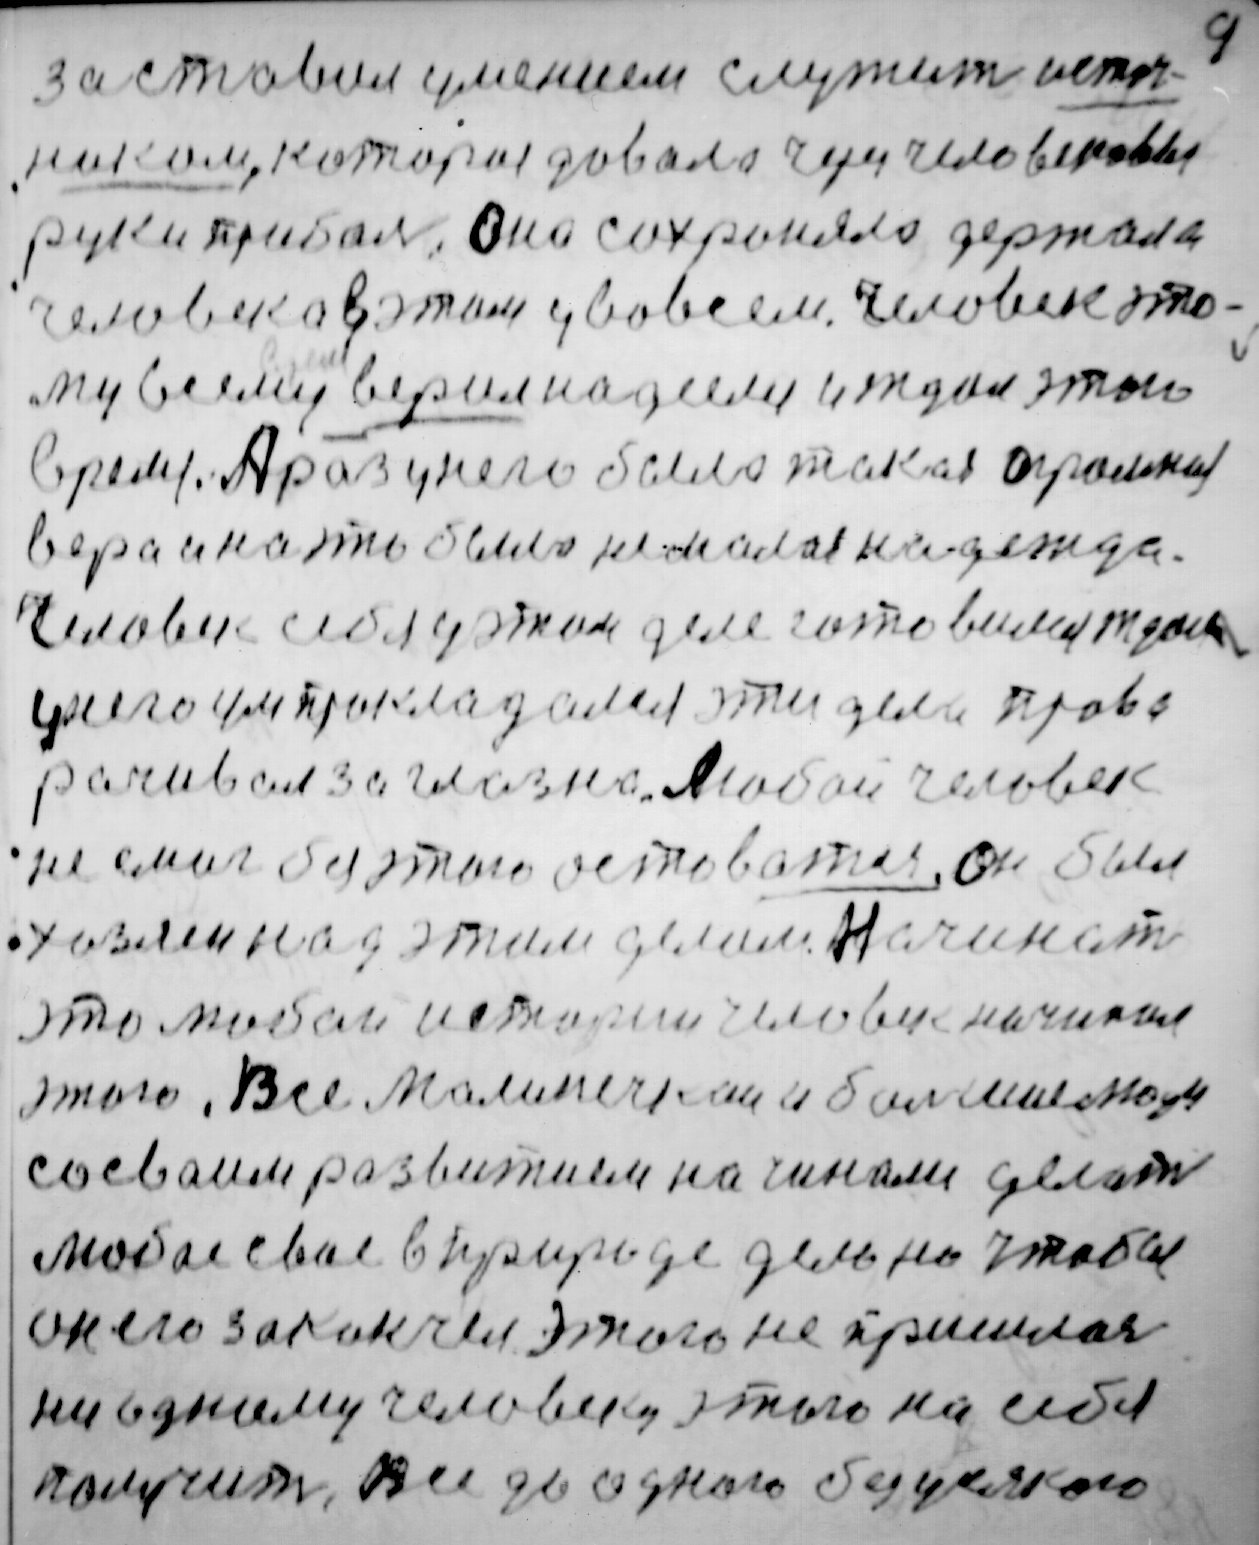 9
заставил умением служит источ-
ником, которая довала чуи человековыи
руки прибал, Она сохроняло держала
человека в этом у вовсем. Человек это-
му всему верил надеели и ждал этого
время. А раз у него была такая огромная
вера и на это было немалая надежда.
Человек себя у этом деле готовился ждал
у него ум прокладался эти дела права
рачивал за глазна. Любой человек
не смог без этого остоватся. Он был
хозяен над этим делом. Начинат
это любои истории человек начинал
этого. Все Малинечкаи и болшие люди
со сваим развитием начинали делат
любое свае в природе дело но чтобы
он его закончел этого не пришлас
ни одному человеку этого на себя
получит, Все до одного без усякого